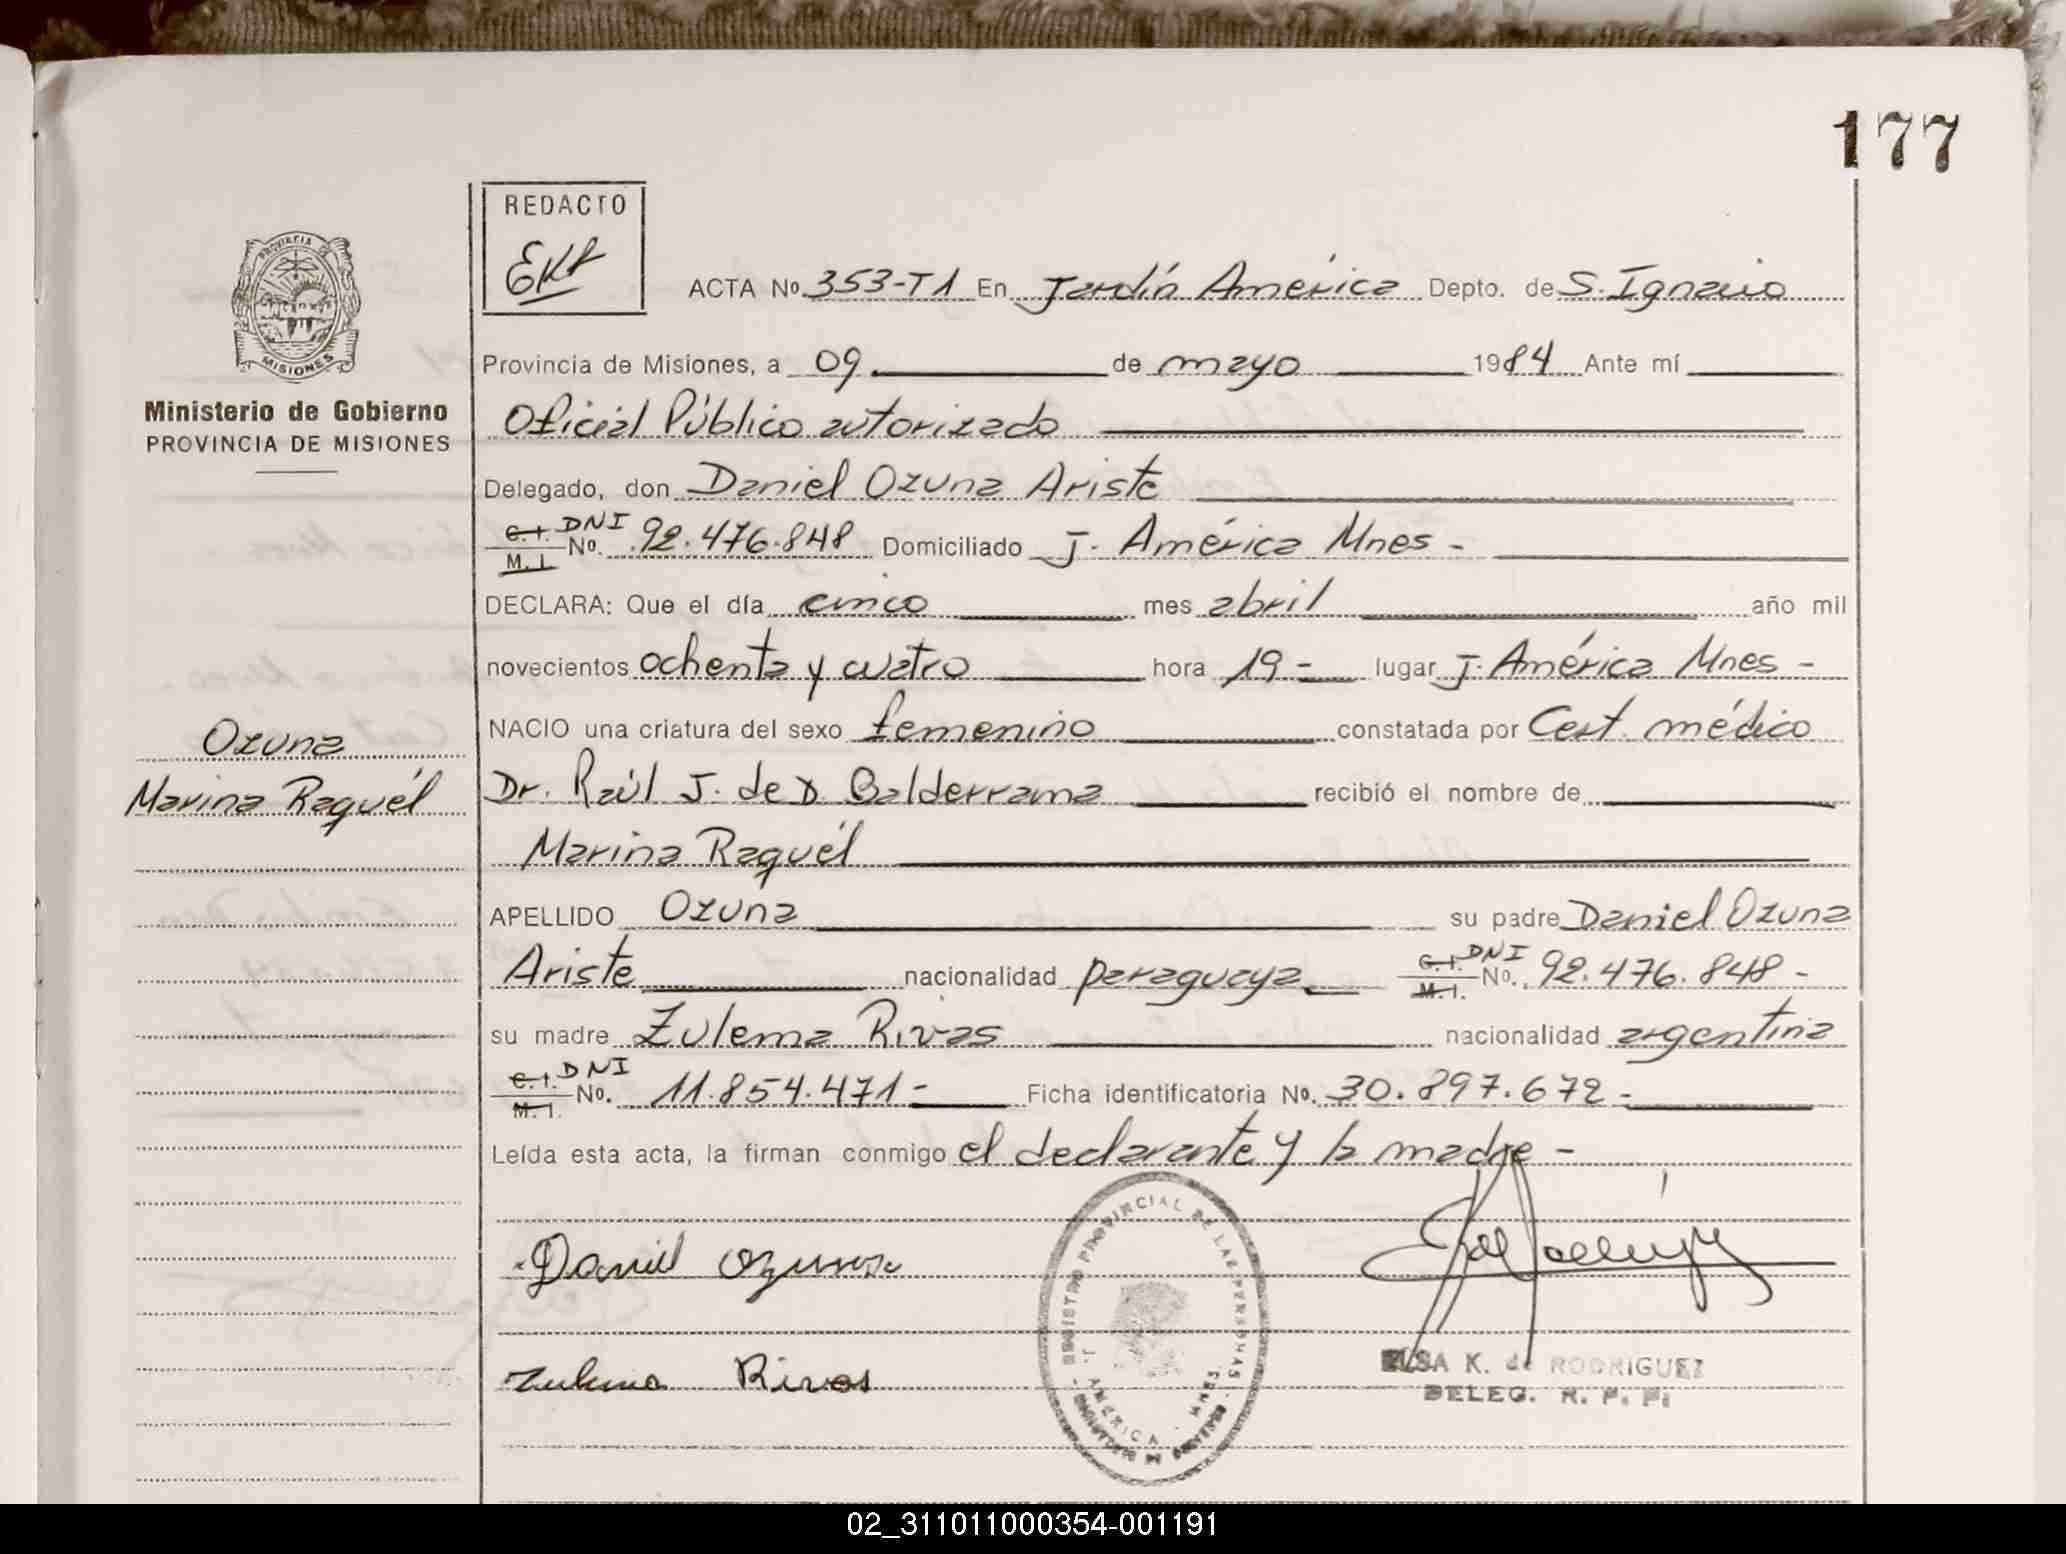 177
REDACTO
EKR
ACTA No. 353-T1 En Jardín América Depto. de S. Ignacio
PROVINCIA DE
MISIONES
Provincia de Misiones, a 09 de mayo 1984 Ante mí
Ministerio de Gobierno
PROVINCIA DE MISIONES
Oficial Público autorizado
Delegado, don Daniel Ozuna Ariste
C.I. DNI
M.I. No. 92.476.848 Domiciliado J. América Mnes -
DECLARA: Que el día cinco mes abril año mil
novecientos ochenta y cuatro hora 19 - lugar J. América Mnes -
Ozuna
NACIO una criatura del sexo femenino constatada por Cert. médico
Marina Raquél
Dr. Raúl J. de D. Balderrama recibió el nombre de
Marina Raquél
APELLIDO Ozuna su padre Daniel Ozuna
Ariste nacionalidad paraguaya C.I. DNI M.I. No. 92.476.848 -
su madre Zulema Rivas nacionalidad argentina
C.I. DNI
M.I. No. 11.854.471 - Ficha identificatoria No. 30.897.672 -
Leída esta acta, la firman conmigo el declarante y la madre -
REGISTRO PROVINCIAL DE LAS PERSONAS
J. AMERICA - MNES.
Daniel Ozuna
Zulema Rivas
ELSA K. de RODRIGUEZ
DELEG. R. P. P.
02_311011000354-001191